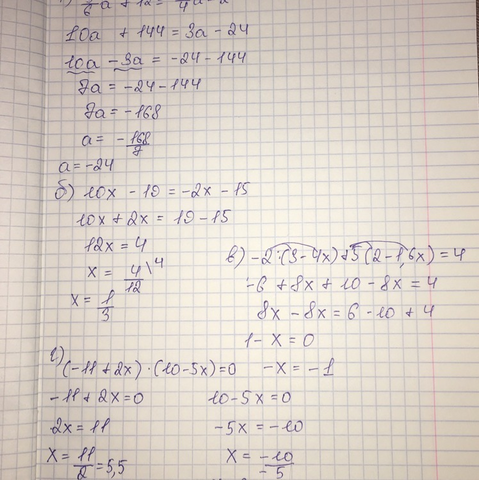 10a + 144 = 3a - 24
10a - 3a = -24 - 144
7a = -24 - 144
7a = -168
a = -168/7
a = -24
б) 10x - 19 = -2x - 15
10x + 2x = 19 - 15
12x = 4
x = 4/12 \4
x = 1/3
в) -2·(3-4x)+5(2-1,6x)=4
-6 + 8x + 10 - 8x = 4
8x - 8x = 6 - 10 + 4
1 - x = 0
-x = -1
г) (-11 + 2x) · (10-5x)=0
-11 + 2x = 0
2x = 11
x = 11/2 = 5,5
10-5x = 0
-5x = -10
x = -10/-5